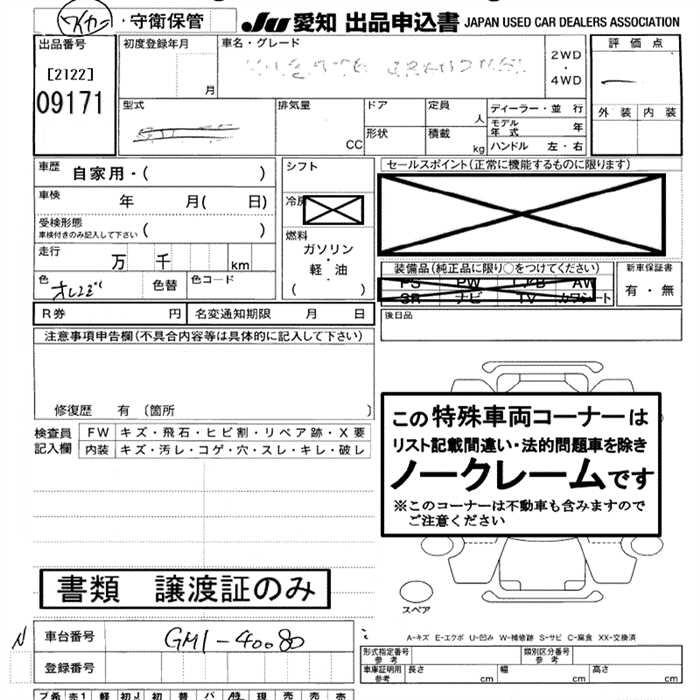 ・守衛保管
JU 愛知 出品申込書 JAPAN USED CAR DEALERS ASSOCIATION
出品番号
[2122]
09171
初度登録年月
月
車名・グレード
2WD
・
4WD
評価点
外装 内装
型式
排気量
CC
ドア
形状
定員
人
積載
kg
ディーラー・並行
モデル年式 年
ハンドル 左・右
車歴 自家用・( )
車検 年 月( 日)
受検形態
車検付きのみ記入して下さい ( )
走行 万 千 km
色 オレンジ 色替 色コード
シフト
冷房
燃料
ガソリン
・
軽・油
( )
セールスポイント(正常に機能するものに限ります)
装備品(純正品に限り○をつけてください)
PS PW エアB AW
SR ナビ TV カワシート
新車保証書
有・無
R券 円 名変通知期限 月 日
後日品
注意事項申告欄(不具合内容等は具体的に記入して下さい)
修復歴 有〔箇所 〕
検査員記入欄
FW キズ・飛石・ヒビ割・リペア跡・X要
内装 キズ・汚レ・コゲ・穴・スレ・キレ・破レ
この特殊車両コーナーは
リスト記載間違い・法的問題車を除き
ノークレームです
※このコーナーは不動車も含みますので
ご注意ください
書類 譲渡証のみ
スペア
A-キズ E-エクボ U-凹み W-補修跡 S-サビ C-腐食 XX-交換済
N 車台番号 GM1-40080
登録番号
形式指定番号
参考
類別区分番号
参考
車庫証明用
参考
長さ cm 幅 cm 高さ cm